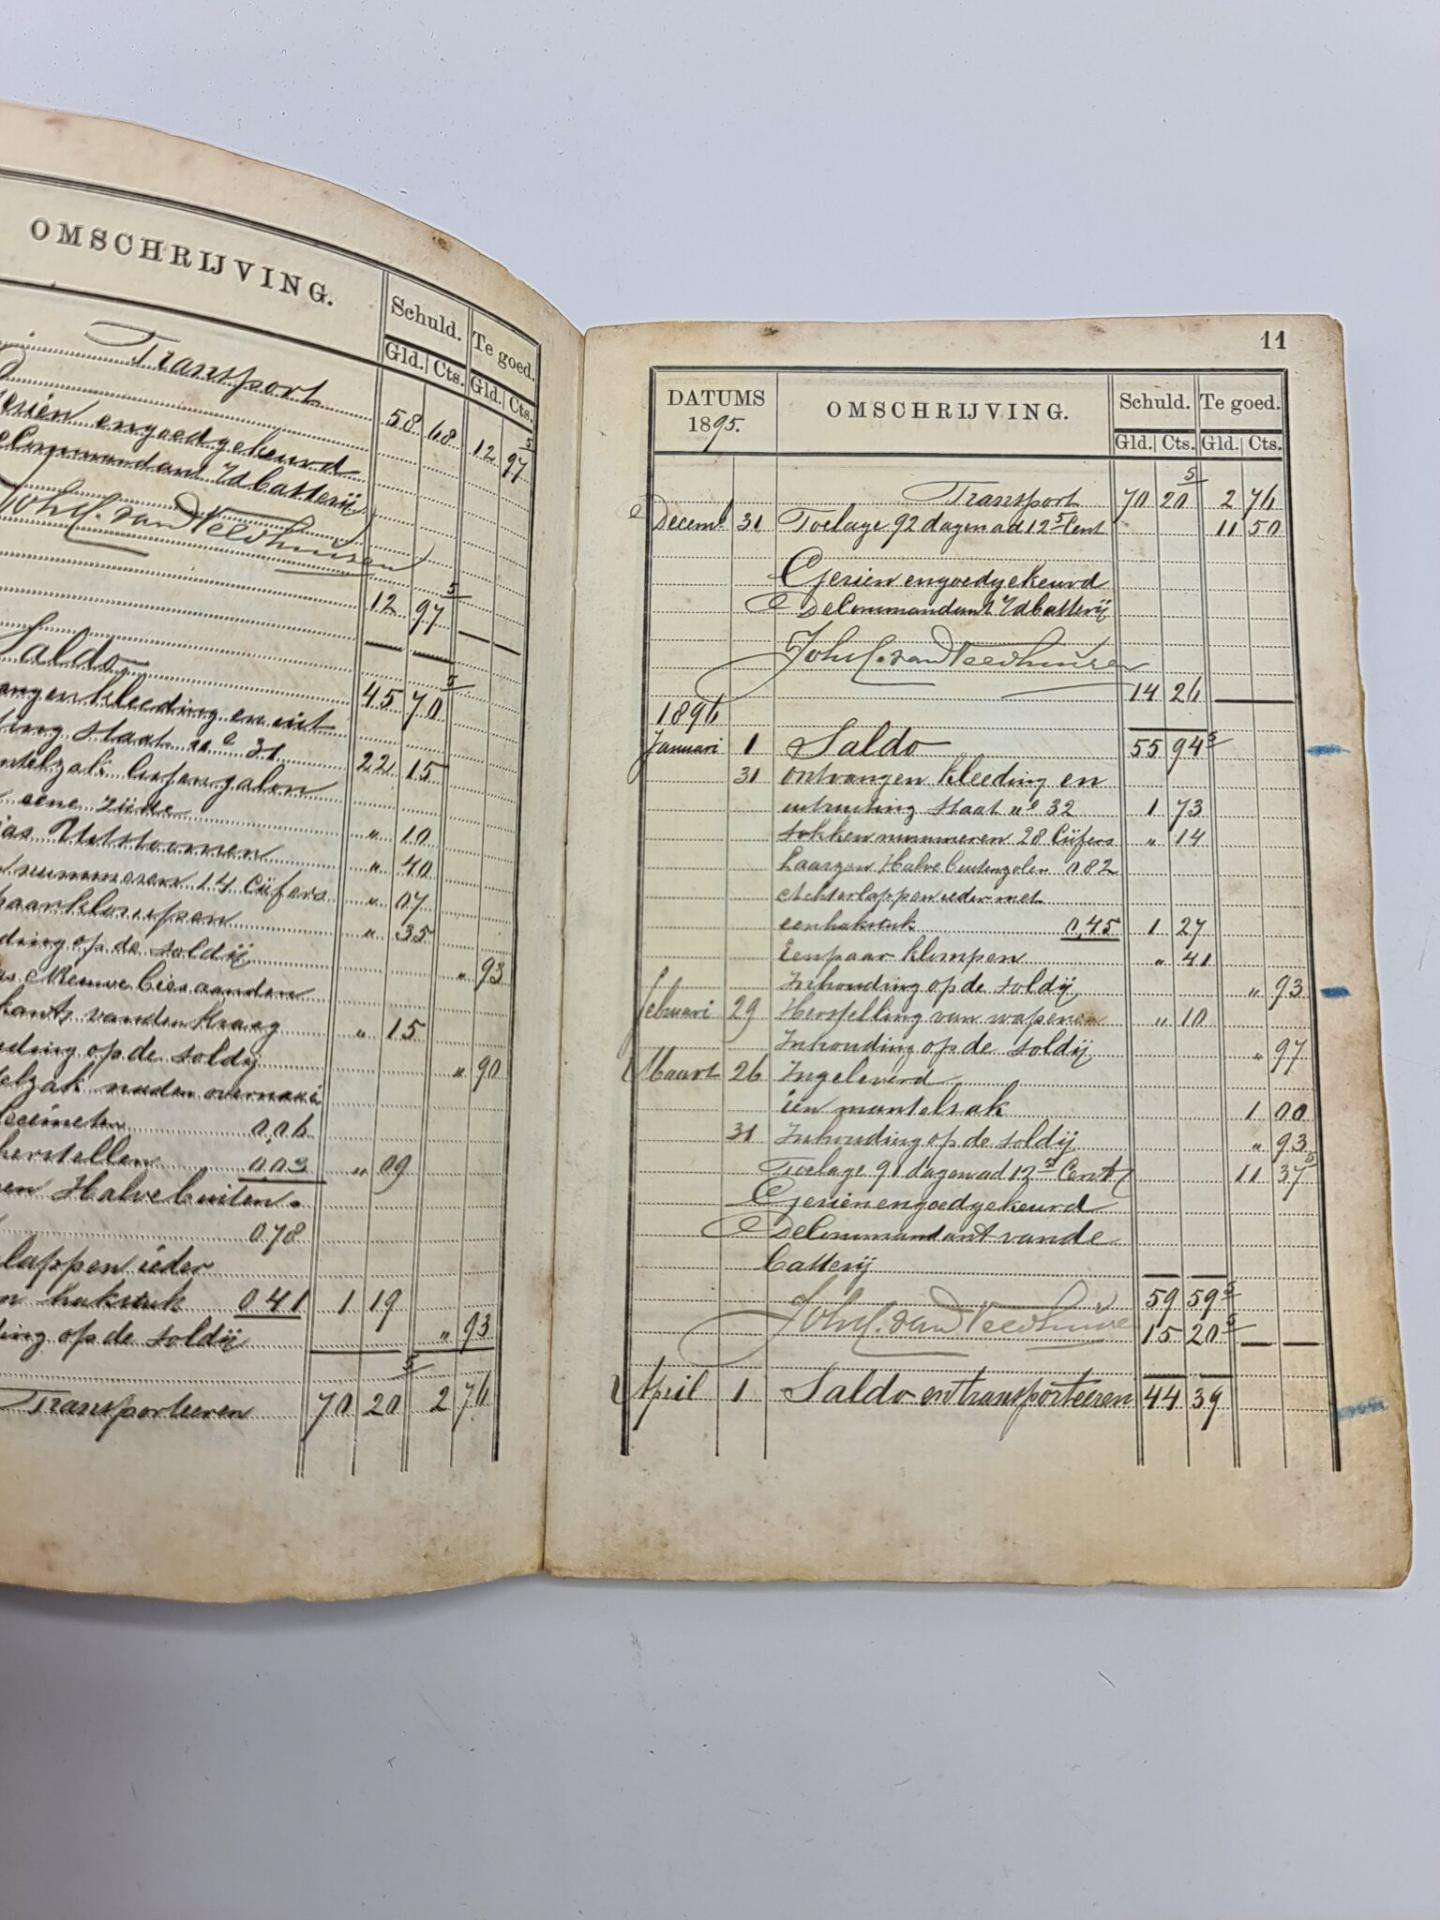 OMSCHRIJVING.
Schuld. Te goed.
Gld. Cts. Gld. Cts.
Transport 58 68 12 97 5
engoedgekeurd
Commandant v/d batterij
Joh. C. van Veldhuisen
12 97 5
Saldo 45 70 5
angen kleeding en uit
ting staat no 31 22 15
ntelzak buitengalon
eene zijde " 10
jas Uitstoomen " 40
nummeren 14 Cijfers " 07
paar klompen " 35
ding op de soldij " 93
as Nieuwe biesaanden
kant vanden kraag " 15
uding op de soldij " 90
telzak naden overnaai
0,06
herstellen 003 " 09
en Halve buiten
078
lappen ieder
n hakstuk 041 1 19
ding op de soldij " 93
Transporteeren 70 20 5 2 76
11
DATUMS 1895. OMSCHRIJVING. Schuld. Te goed.
Gld. Cts. Gld. Cts.
Transport 70 20 5 2 76
Decemb 31 Toelage 92 dagen ad 12 5 Cent 11 50
Gezien engoedgekeurd
De Commandant v/d batterij
Joh. C. van Veldhuisen
14 26
1896
Januari 1 Saldo 55 94 5
31 ontvangen kleeding en
uitrusting staat no 32 1 73
sokken nummeren 28 Cijfers " 14
Laarzen Halve buitenzolen 082
Achterlappen ieder met
een hakstuk 0,45 1 27
Een paar klompen " 41
Inhouding op de soldij " 93
februari 29 Herstelling van wapenen " 10
Inhouding op de soldij " 97
Maart 26 Ingeleverd
een mantelzak 1 00
31 Inhouding op de soldij " 93
Toelage 91 dagen ad 12 5 Cent 11 37 5
Gezien engoedgekeurd
De Commandant van de
batterij
59 59 5
Joh. C. van Veldhuisen
15 20 5
April 1 Saldo en transporteeren 44 39